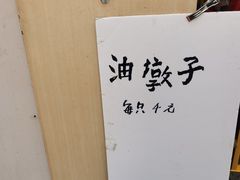 油墩子
每只4元